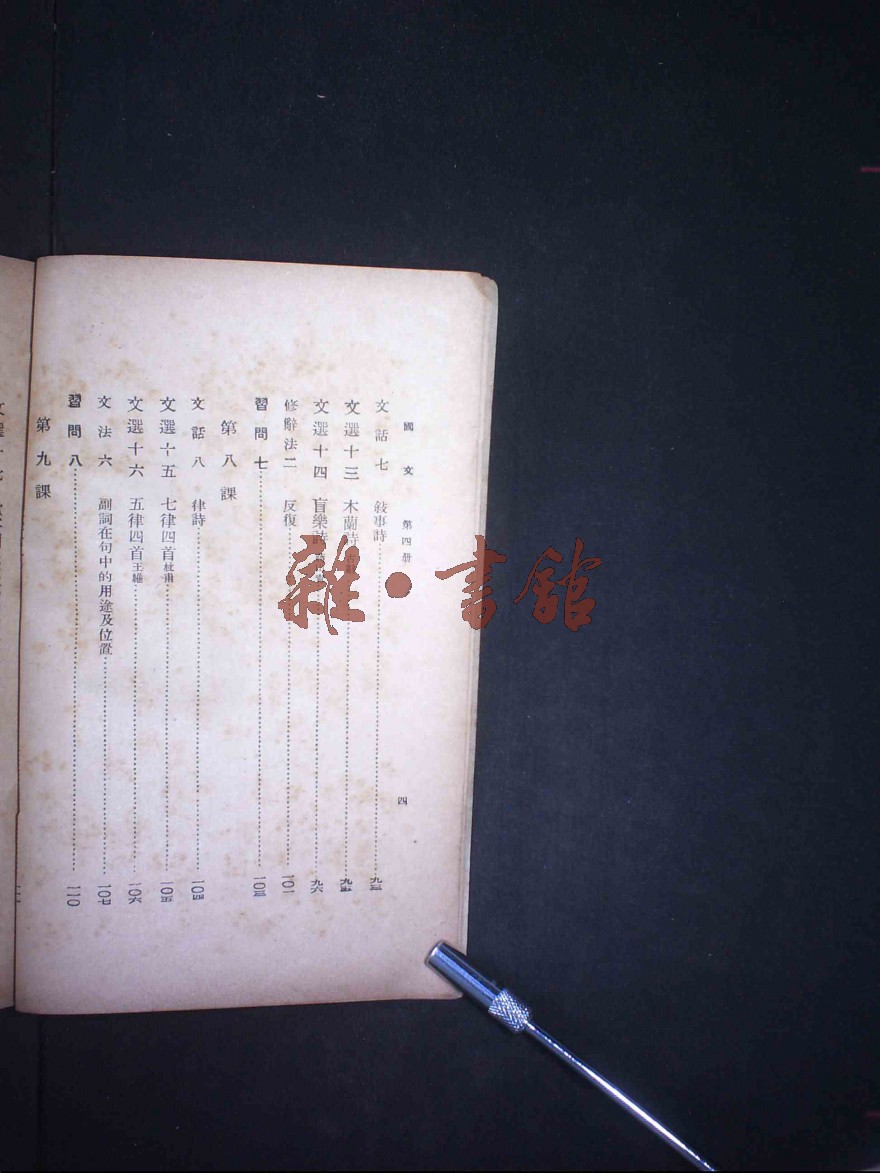 國文 第四册 四
文話七 敍事詩 九三
文選十三 木蘭詩 九五
文選十四 盲樂詩 九六
修辭法二 反復 一〇一
習問七 一〇三
第八課
文話八 律詩 一〇四
文選十五 七律四首 杜甫 一〇五
文選十六 五律四首 王維 一〇六
文法六 副詞在句中的用途及位置 一〇七
習問八 一一〇
第九課
雜•書館